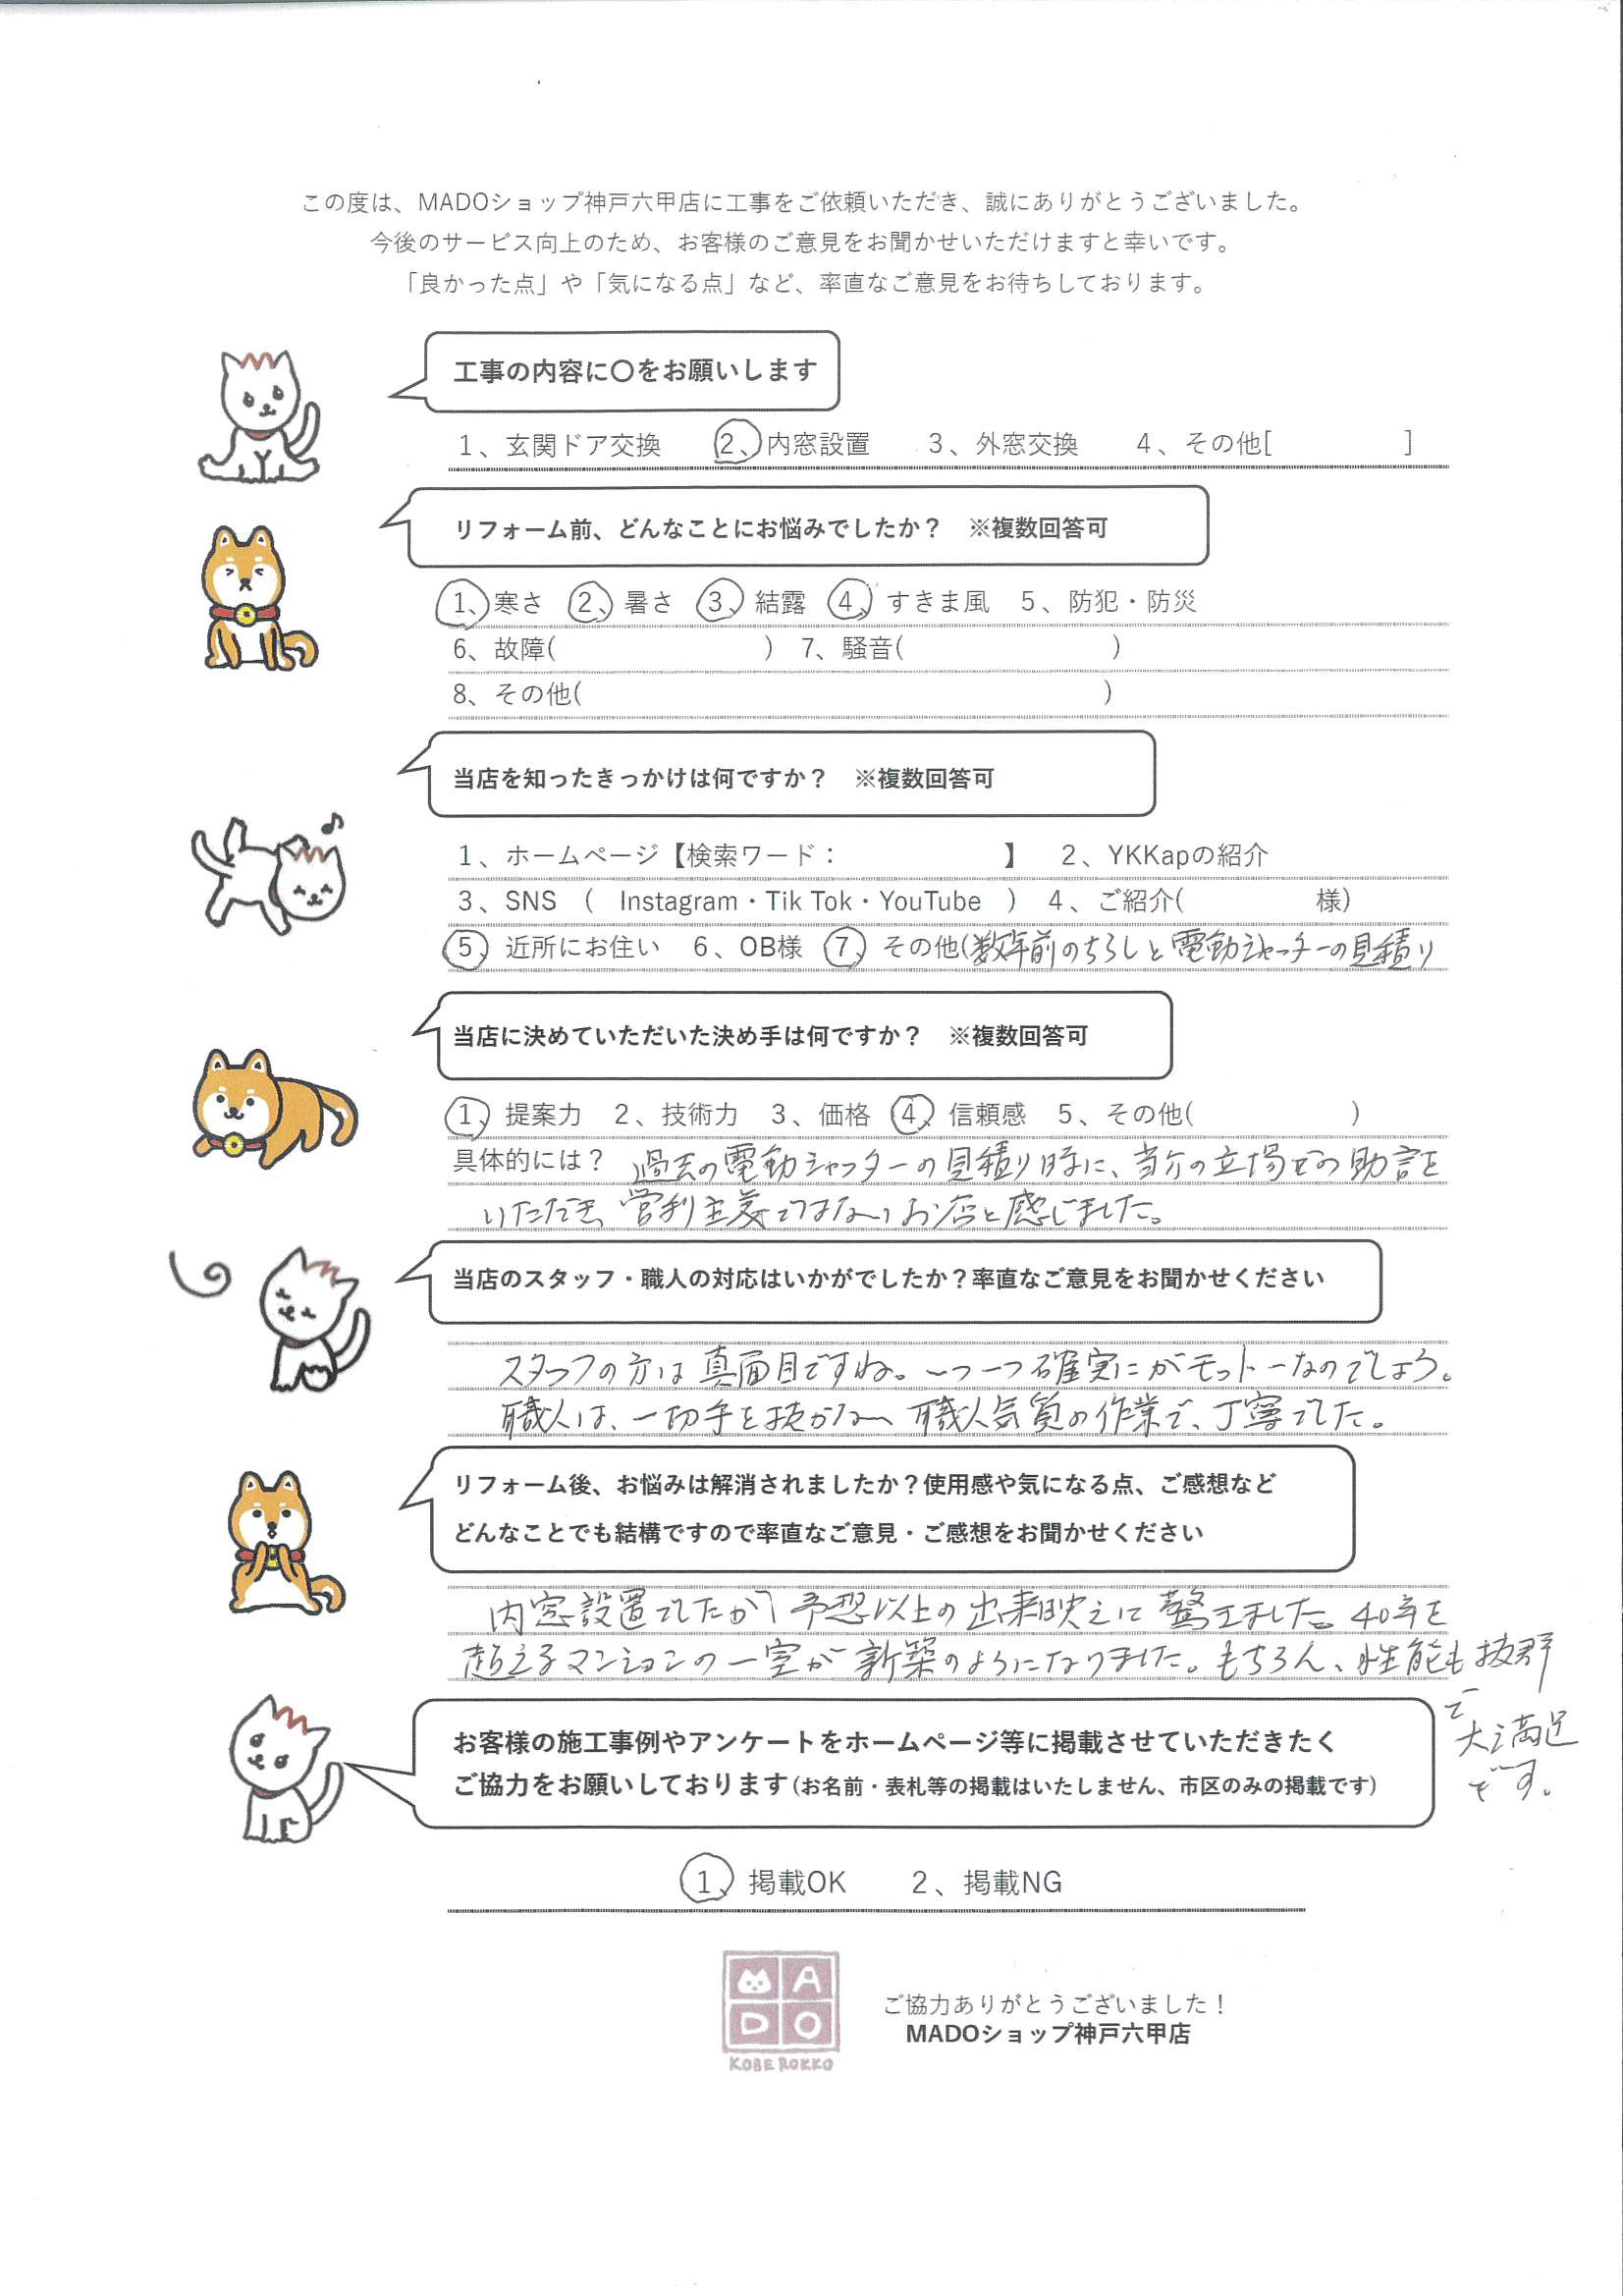 この度は、MADOショップ神戸六甲店に工事をご依頼いただき、誠にありがとうございました。
今後のサービス向上のため、お客様のご意見をお聞かせいただけますと幸いです。
「良かった点」や「気になる点」など、率直なご意見をお待ちしております。
工事の内容に〇をお願いします
1、玄関ドア交換 2、内窓設置 3、外窓交換 4、その他[ ]
リフォーム前、どんなことにお悩みでしたか？ ※複数回答可
1、寒さ 2、暑さ 3、結露 4、すきま風 5、防犯・防災
6、故障( ) 7、騒音( )
8、その他( )
当店を知ったきっかけは何ですか？ ※複数回答可
1、ホームページ【検索ワード： 】 2、YKKapの紹介
3、SNS ( Instagram・Tik Tok・YouTube ) 4、ご紹介( 様)
5、近所にお住い 6、OB様 7、その他(数年前のちらしと電動シャッターの見積り
当店に決めていただいた決め手は何ですか？ ※複数回答可
1、提案力 2、技術力 3、価格 4、信頼感 5、その他( )
具体的には？ 過去の電動シャッターの見積り時に、当方の立場での助言を
いただき、営利主義ではないお店と感じました。
当店のスタッフ・職人の対応はいかがでしたか？率直なご意見をお聞かせください
スタッフの方は真面目ですね。一つ一つ確実にがモットーなのでしょう。
職人は、一切手を抜かない職人気質の作業で、丁寧でした。
リフォーム後、お悩みは解消されましたか？使用感や気になる点、ご感想など
どんなことでも結構ですので率直なご意見・ご感想をお聞かせください
内窓設置でしたが、予想以上の出来映えに驚きました。40年を
超えるマンションの一室が新築のようになりました。もちろん、性能も抜群
で
大満足
です。
お客様の施工事例やアンケートをホームページ等に掲載させていただきたく
ご協力をお願いしております(お名前・表札等の掲載はいたしません、市区のみの掲載です)
1、掲載OK 2、掲載NG
MADO
KOBE ROKKO
ご協力ありがとうございました！
MADOショップ神戸六甲店